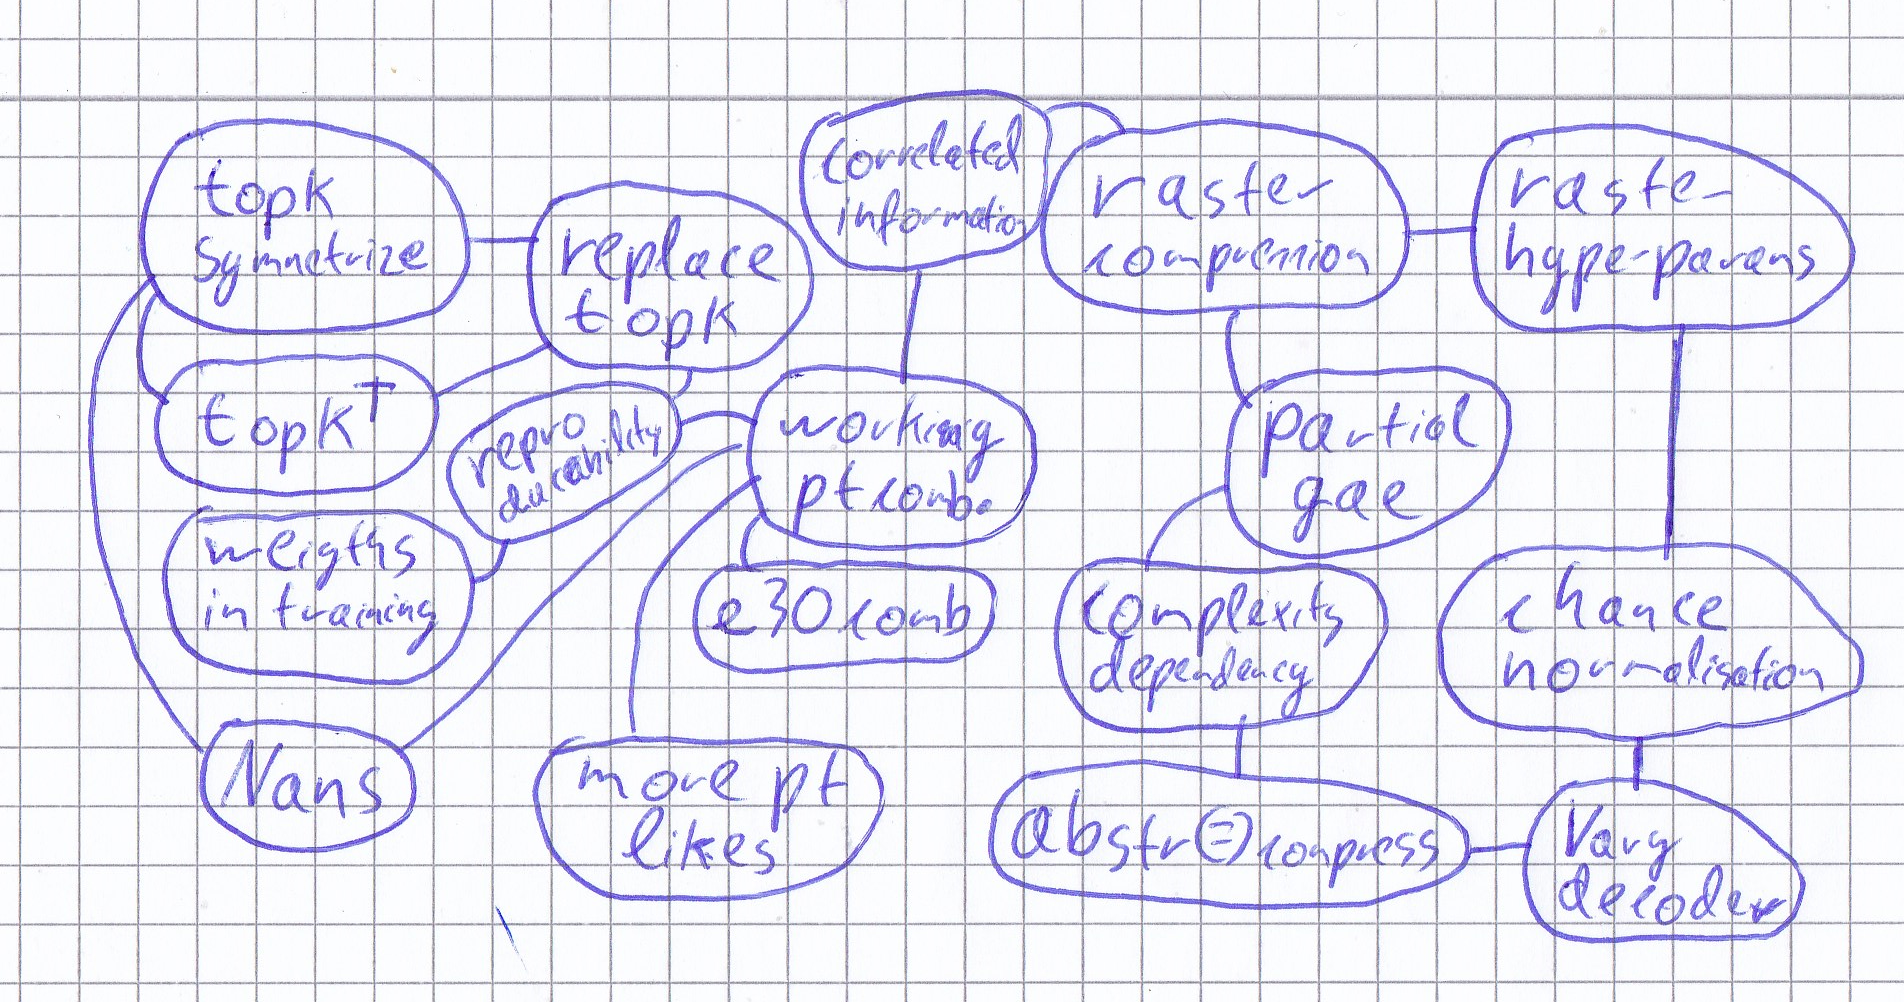 topk
symmetrize
replace
topk
correlated
information
raster
compression
raster
hyperparams
topk†
repro
ducability
working
ptcomb.
partial
gae
weigths
in training
e30comb
complexity
dependency
chance
normalisation
Nans
more pt
likes
abstr(=)compress
Vary
decoder